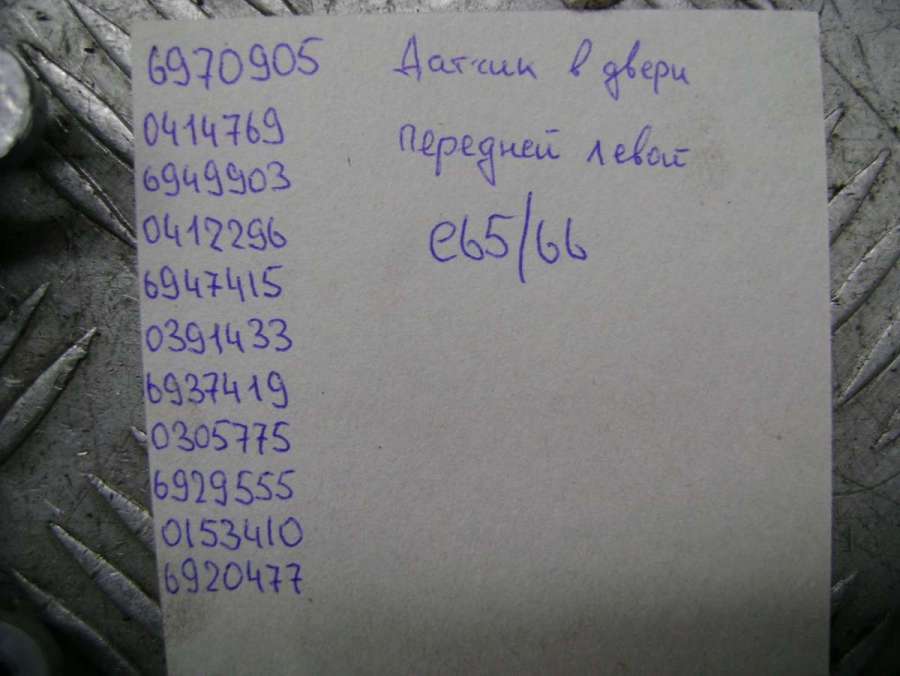 6970905 Датчик в двери
0414769 передней левой
6949903
0412296 е65/66
6947415
0391433
6937419
0305775
6929555
0153410
6920477